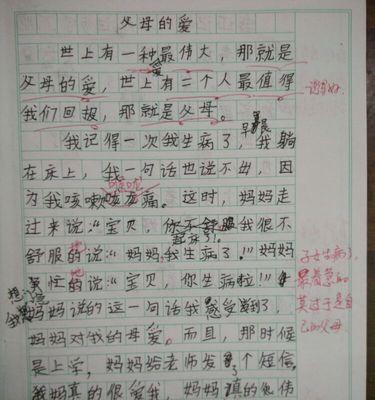 父母的爱
世上有一种爱最伟大，那就是
父母的爱，世上有二个人最值得
我们回报，那就是父母。
我记得一次我生病了，早晨我躺
在床上，我一句话也说不出，因
为我咳嗽咳
痛。这时，妈妈走
过来说：“宝贝，你不舒服
起床了！
我很不
舒服的说：“妈妈，我生病了。”妈妈
急忙的说：“宝贝，你生病啦！”
妈妈说的这一句话我感受到了，
妈妈对我的母爱。而且，那时候
是上学，妈妈给老师发了个短信，
我妈真的很爱我，妈妈真的
伟
子女生病了，
最着急的
莫过于是自
己的父母